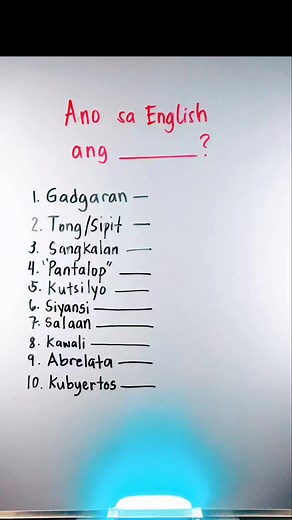 Ano sa English
ang ________?
1. Gadgaran —
2. Tong/Sipit —
3. Sangkalan —
4. "Pantalop" ____
5. Kutsilyo ____
6. Siyansi ______
7. Salaan ______
8. Kawali ______
9. Abrelata ____
10. Kubyertos ____